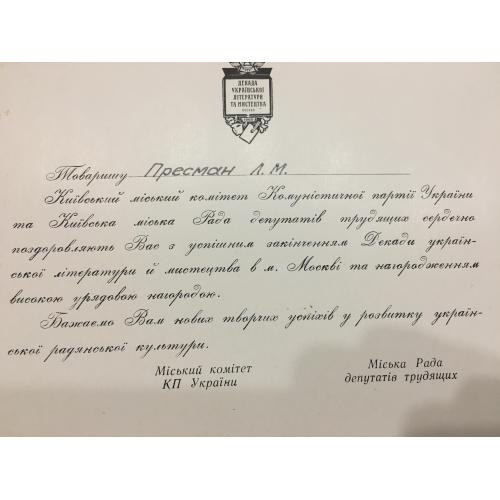 ДЕКАДА
УКРАЇНСЬКОЇ
ЛІТЕРАТУРИ
ТА МИСТЕЦТВА
Товаришу Пресман Л. М.
Київський міський комітет Комуністичної партії України
та Київська міська Рада депутатів трудящих сердечно
поздоровляють Вас з успішним закінченням Декади україн-
ської літератури й мистецтва в м. Москві та нагородженням
високою урядовою нагородою.
Бажаємо Вам нових творчих успіхів у розвитку україн-
ської радянської культури.
Міський комітет
КП України
Міська Рада
депутатів трудящих